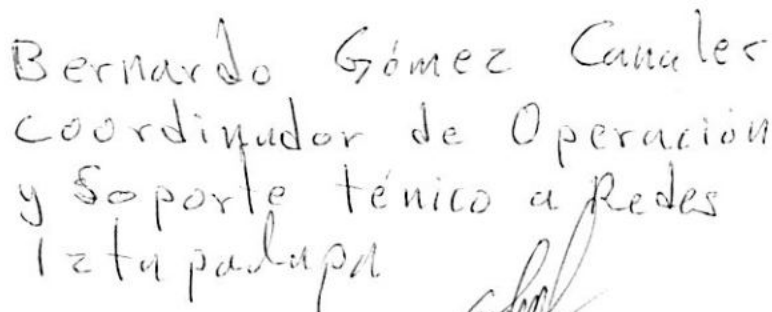 Bernardo Gómez Canales
Coordinador de Operación
y Soporte ténico a Redes
Iztapalapa